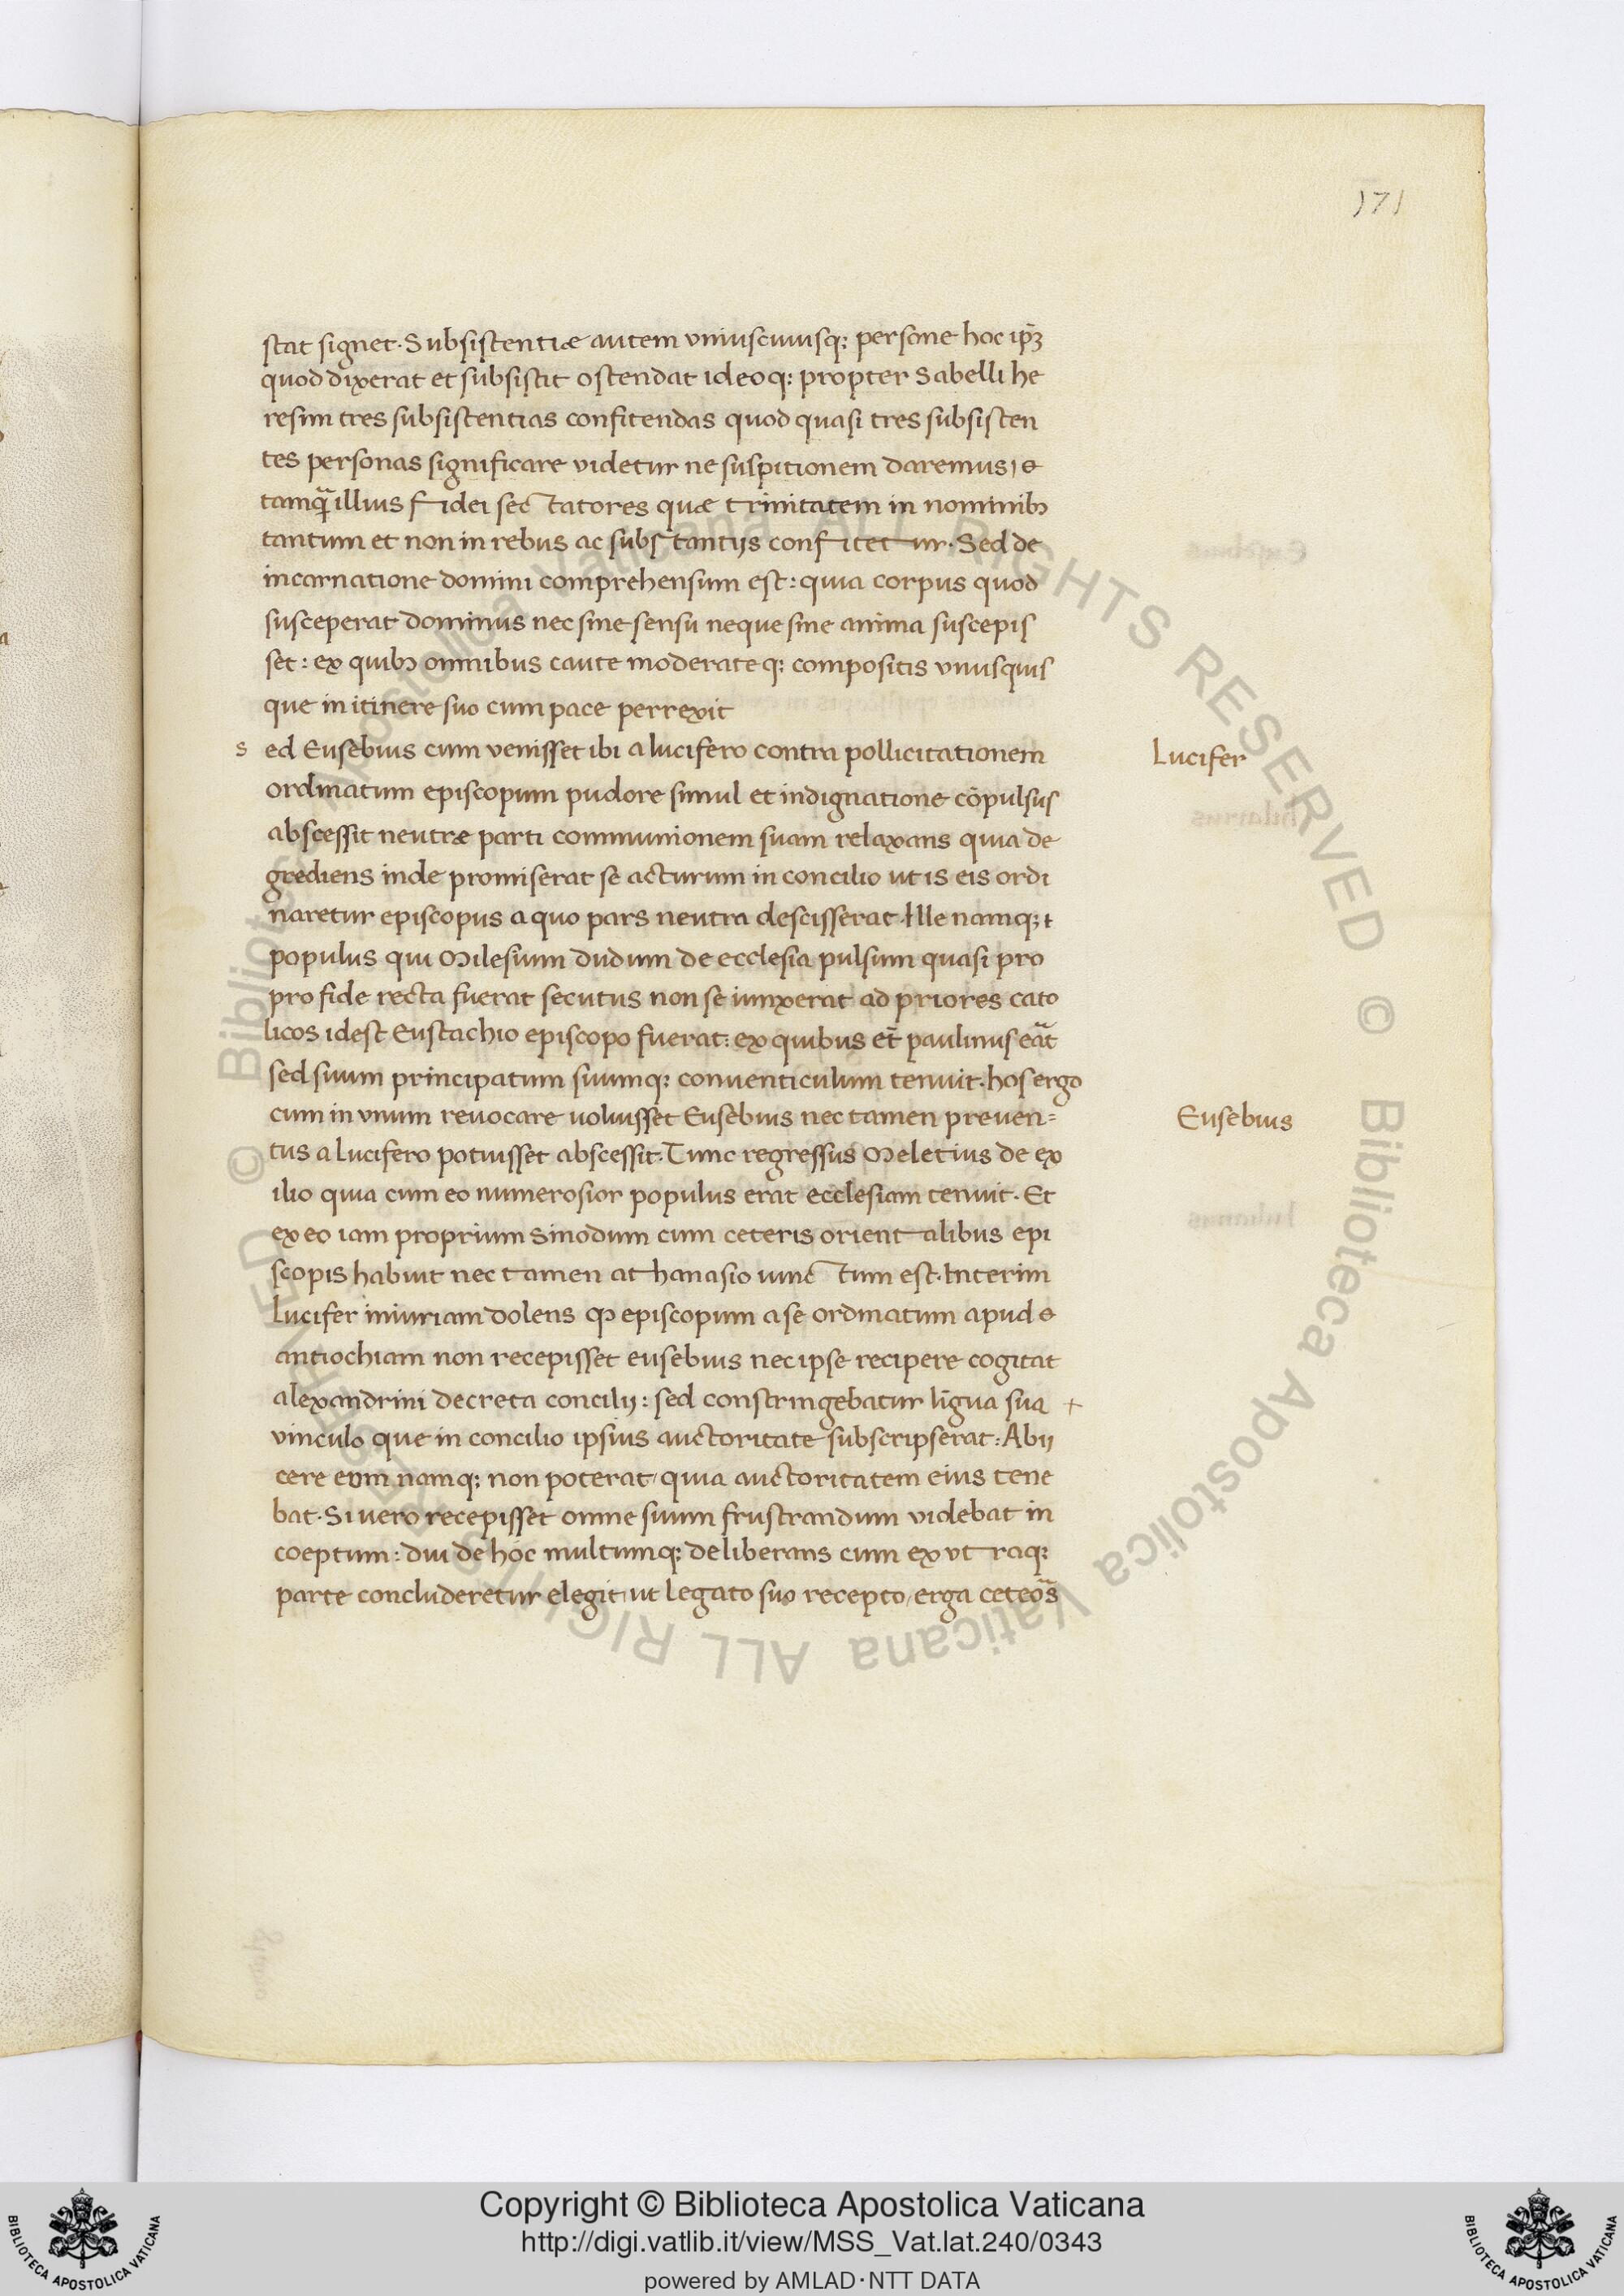 171
stat signet. Subsistentiæ autem vniuscuiusq; persone hoc ip̄ꝫ
quod dixerat et subsistit ostendat ideoq; propter Sabelli he
resim tres subsistentias confitendas quod quasi tres subsisten
tes personas significare videtur ne suspitionem daremus,
tamq̄ illius fidei sectatores quæ trinitatem in nominibꝫ
tantum et non in rebus ac substantijs confitetur. Sed de
incarnatione domini comprehensum est: quia corpus quod
susceperat dominus nec sine sensu neque sine anima suscepis
set: ex quibꝫ omnibus caute moderateq; compositis vnusquis
que in itinere suo cum pace perrexit
s ed Eusebius cum venisset ibi a lucifero contra pollicitationem
Lucifer
ordinatum episcopum pudore simul et indignatione cōpulsus
abscessit neutræ parti communionem suam relaxans quia de
grediens inde promiserat se acturum in concilio ut is eis ordi
naretur episcopus a quo pars neutra descisserat. Ille namq;
populus qui Milesium dudum de ecclesia pulsum quasi pro
pro fide recta fuerat secutus non se iunxerat ad priores cato
licos idest Eustachio episcopo fuerat: ex quibus et̄ paulinus eāt
sed suum principatum suumq; conuenticulum tenuit. hos ergo
cum in vnum reuocare uoluisset Eusebius nec tamen preuen=
Eusebius
tus a lucifero potuisset abscessit. Tunc regressus Meletius de ex
ilio quia cum eo numerosior populus erat ecclesiam tenuit. Et
ex eo iam proprium sinodum cum ceteris orientalibus epi
scopis habuit nec tamen athanasio iunctum est. Interim
Lucifer iniuriam dolens ꝙ episcopum a se ordinatum apud
antiochiam non recepisset eusebius nec ipse recipere cogitat
alexandrini decreta concilij: sed constringebatur ligua sua +
vinculo que in concilio ipsius auctoritate subscripserat: Abij
cere eum namq; non poterat, quia auctoritatem eius tene
bat. Si uero recepisset omne suum frustrandum videbat in
coeptum: diu de hoc multumq; deliberans cum ex vtraq;
parte concluderetur elegit, ut legato suo recepto, erga ceteoᷓs
© Biblioteca Apostolica Vaticana ALL RIGHTS RESERVED © Biblioteca Apostolica Vaticana ALL RIGHTS RESERVED
BIBLIOTECA APOSTOLICA VATICANA
Copyright © Biblioteca Apostolica Vaticana
http://digi.vatlib.it/view/MSS_Vat.lat.240/0343
powered by AMLAD·NTT DATA
BIBLIOTECA APOSTOLICA VATICANA